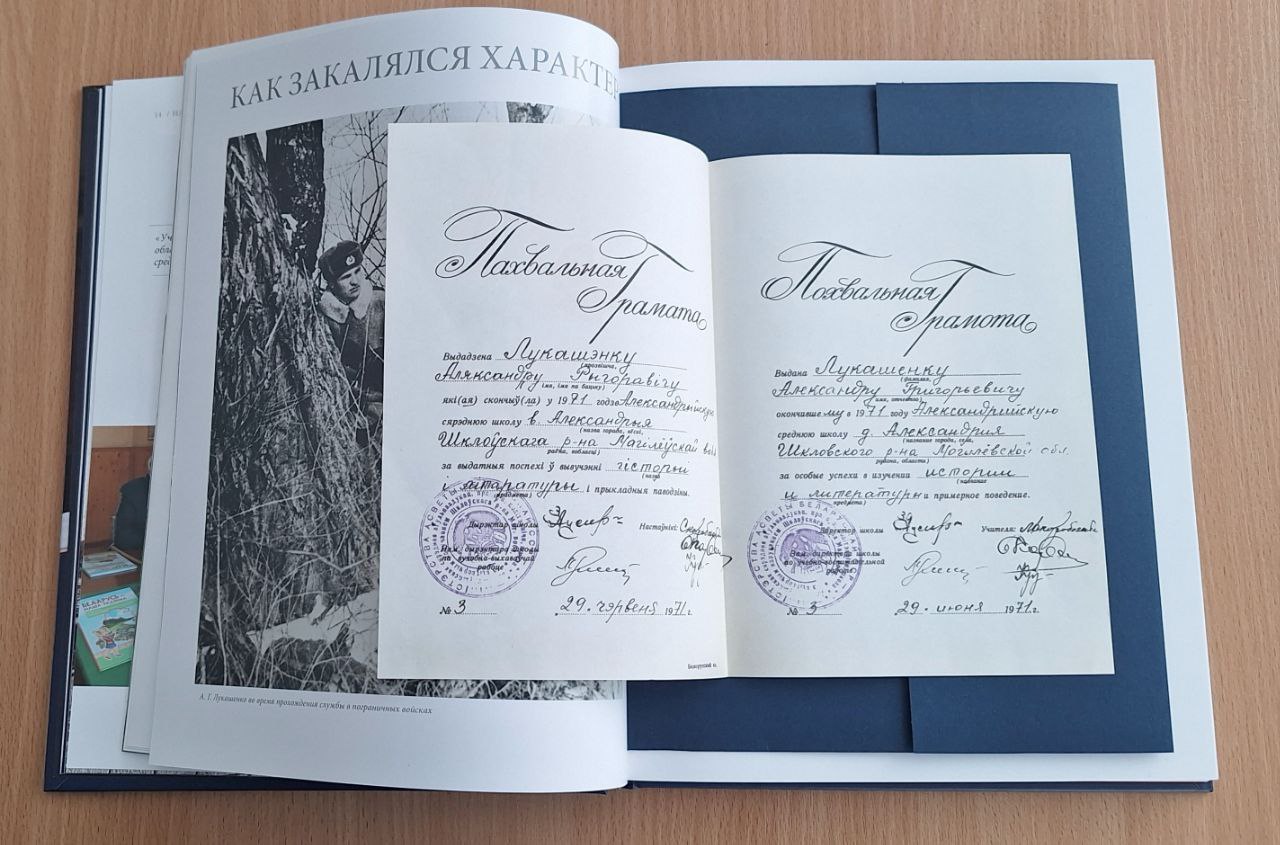 14 /
«Уч
обл
сред
КАК ЗАКАЛЯЛСЯ ХАРАКТЕР
БЕЛАРУСЬ
А. Г. Лукашенко во время прохождения службы в пограничных войсках
Пахвальная
Грамата
Выдадзена Лукашэнку
(прозвішча,
Аляксандру Рыгоравічу
імя, імя па бацьку)
які(ая) скончыў(ла) у 1971 годзе Александрыйскую
сярэднюю школу в. Александрыя
(назва горада, вёскі,
Шклоўскага р-на Магілёўскай вобл
раёна, вобласці)
за выдатныя поспехі ў вывучэнні гісторыі
(назва
і літаратуры і прыкладныя паводзіны.
прадмета)
Дырэктар школы
Настаўнікі:
Нам. дырэктара школы
па вучэбна-выхаваўчай
рабоце
№ 3
29. чэрвеня 1971 г.
Белорусский яз.
Похвальная
Грамота
Выдана Лукашенку
(фамилия,
Александру Григорьевичу
имя, отчество)
окончившему в 1971 году Александрийскую
среднюю школу д. Александрия
(название города, села,
Шкловского р-на Могилёвской обл.
района, области)
за особые успехи в изучении истории
(название
и литературы и примерное поведение.
предмета)
Директор школы
Учителя:
Зам. директора школы
по учебно-воспитательной
работе
№ 3
29. июня 1971 г.